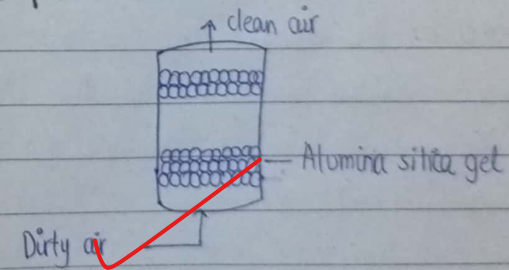 clean air
Alumina silica gel
Dirty air